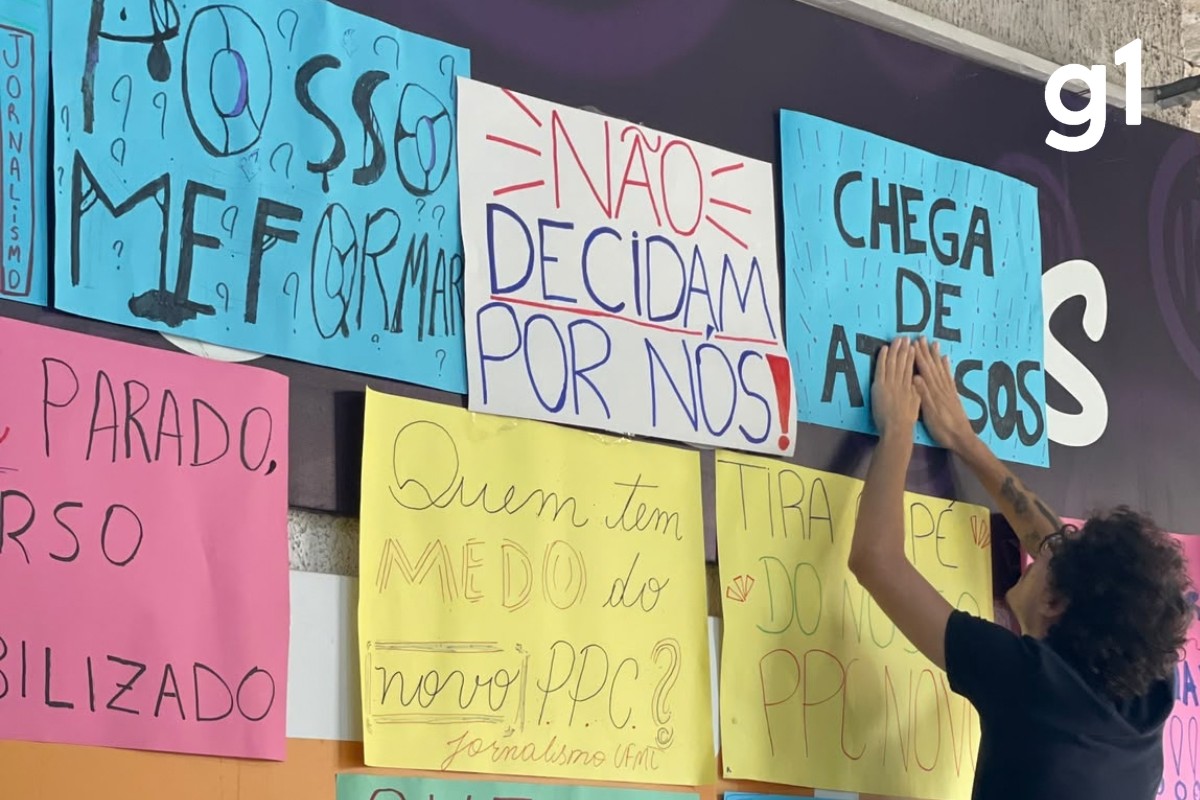 g1
JORNALISMO
POSSO
ME FORMAR
NÃO
DECIDAM
POR NÓS!
CHEGA
DE
S
PARADO,
RSO
BILIZADO
Quem tem
MEDO do
novo P.P.C.?
Jornalismo UFMT
TIRA PÉ
DO
PPC